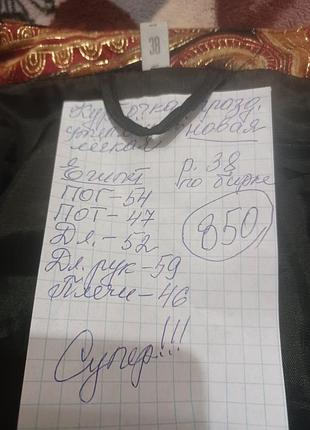 38
Курточка празд.
новая
легкая
Египет р. 38
ПОГ-54 по бирке
ПОТ-47 850
Дл.-52
Дл. рук-59
Плечи-46
Супер!!!